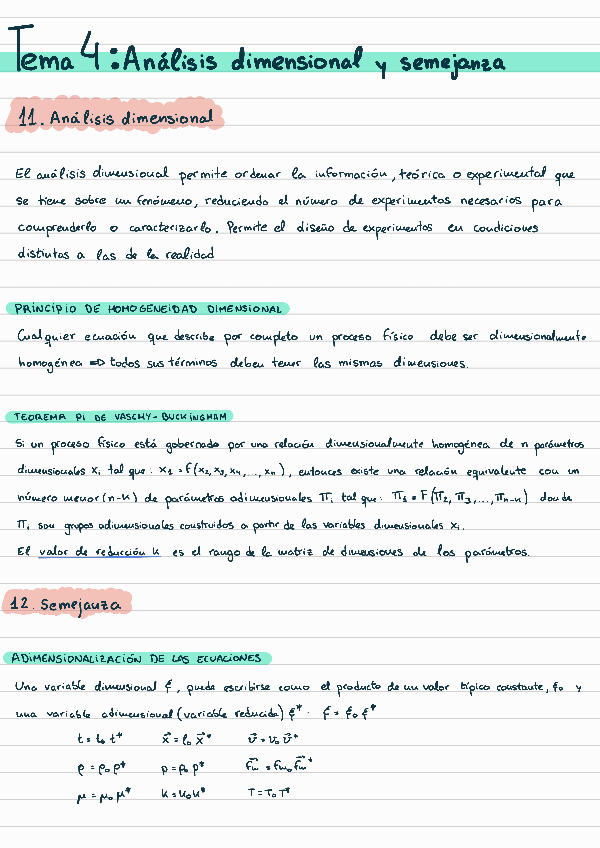 Tema 4: Análisis dimensional y semejanza
11. Análisis dimensional
El análisis dimensional permite ordenar la información, teórica o experimental que
se tiene sobre un fenómeno, reduciendo el número de experimentos necesarios para
comprenderlo o caracterizarlo. Permite el diseño de experimentos en condiciones
distintas a las de la realidad
PRINCIPIO DE HOMOGENEIDAD DIMENSIONAL
Cualquier ecuación que describe por completo un proceso físico debe ser dimensionalmente
homogénea => todos sus términos deben tener las mismas dimensiones.
TEOREMA PI DE VASCHY-BUCKINGHAM
Si un proceso físico está gobernado por una relación dimensionalmente homogénea de n parámetros
dimensionales xi tal que: x1 = f(x2, x3, x4, ..., xn), entonces existe una relación equivalente con un
número menor (n-k) de parámetros adimensionales πi tal que: π1 = F(π2, π3, ..., πn-k) donde
πi son grupos adimensionales construidos a partir de las variables dimensionales xi.
El valor de reducción k es el rango de la matriz de dimensiones de los parámetros.
12. Semejanza
ADIMENSIONALIZACIÓN DE LAS ECUACIONES
Una variable dimensional f, puede escribirse como el producto de un valor típico constante, f0 y
una variable adimensional (variable reducida) f*. f = f0 f*
t = t0 t* x⃗ = l0 x⃗* v⃗ = v0 v⃗*
ρ = ρ0 ρ* p = p0 p* f⃗m = fm0 f⃗m*
μ = μ0 μ* k = k0 k* T = T0 T*